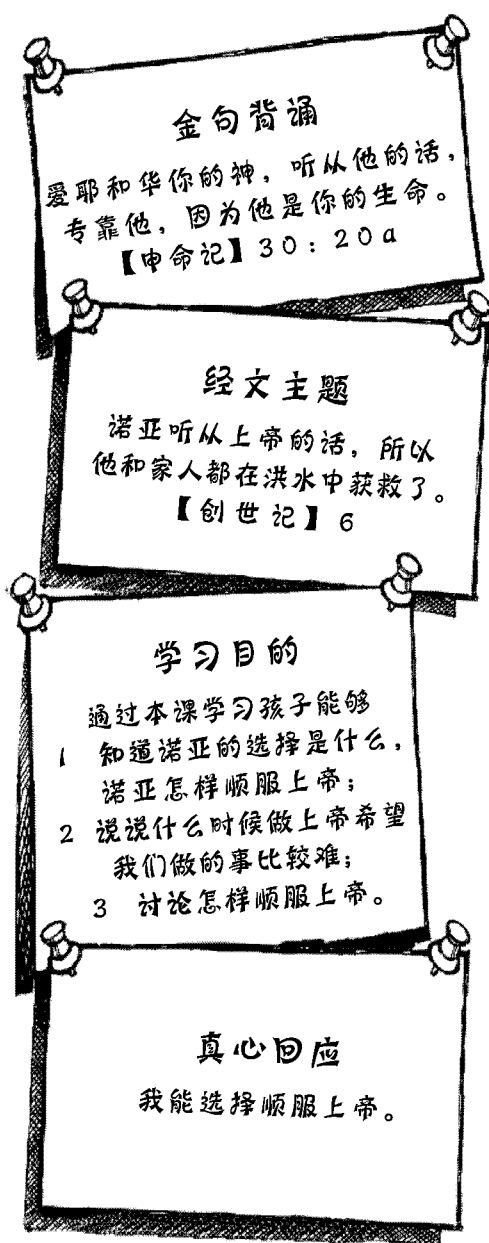 金句背诵
爱耶和华你的神，听从他的话，
专靠他，因为他是你的生命。
【申命记】30：20a
经文主题
诺亚听从上帝的话，所以
他和家人都在洪水中获救了。
【创世记】6
学习目的
通过本课学习孩子能够
1 知道诺亚的选择是什么，
诺亚怎样顺服上帝；
2 说说什么时候做上帝希望
我们做的事比较难；
3 讨论怎样顺服上帝。
真心回应
我能选择顺服上帝。